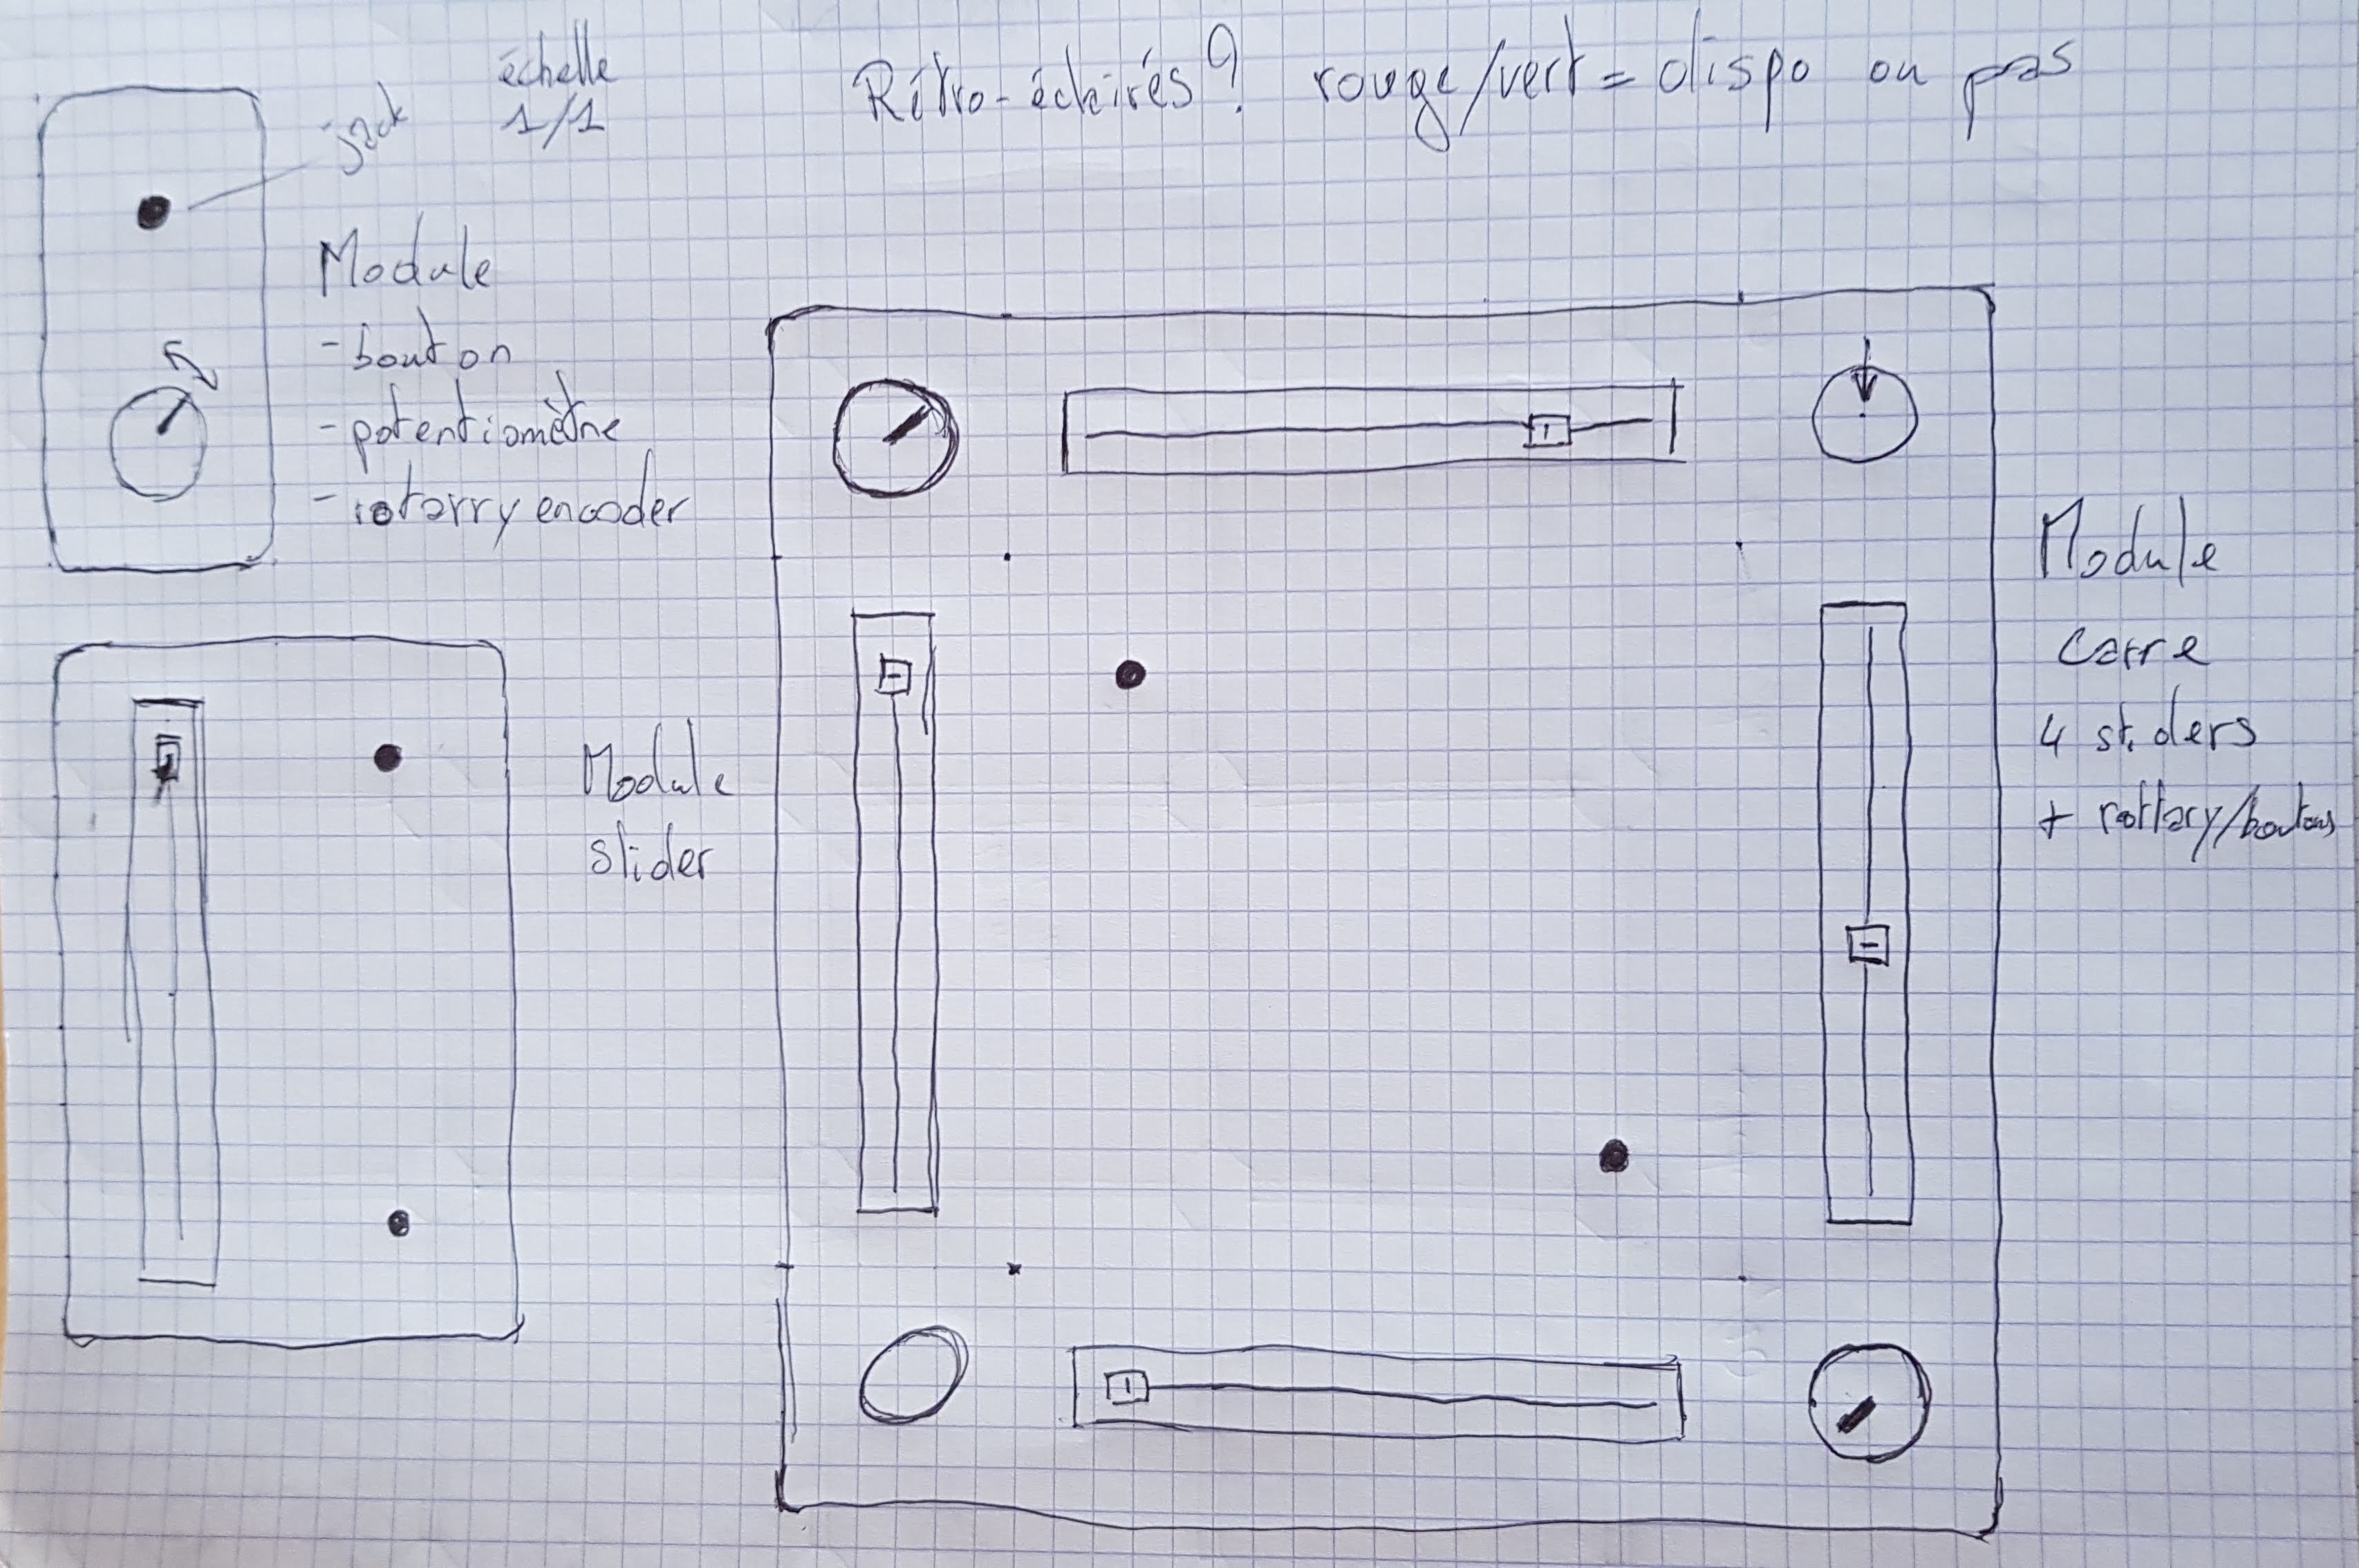 échelle
1/1
jack
Rétro-éclairés? rouge/vert = dispo ou pas
Module
- bouton
- potentiomètre
- rotarry encoder
Module
slider
Module
carre
4 sliders
+ rottary/boutons